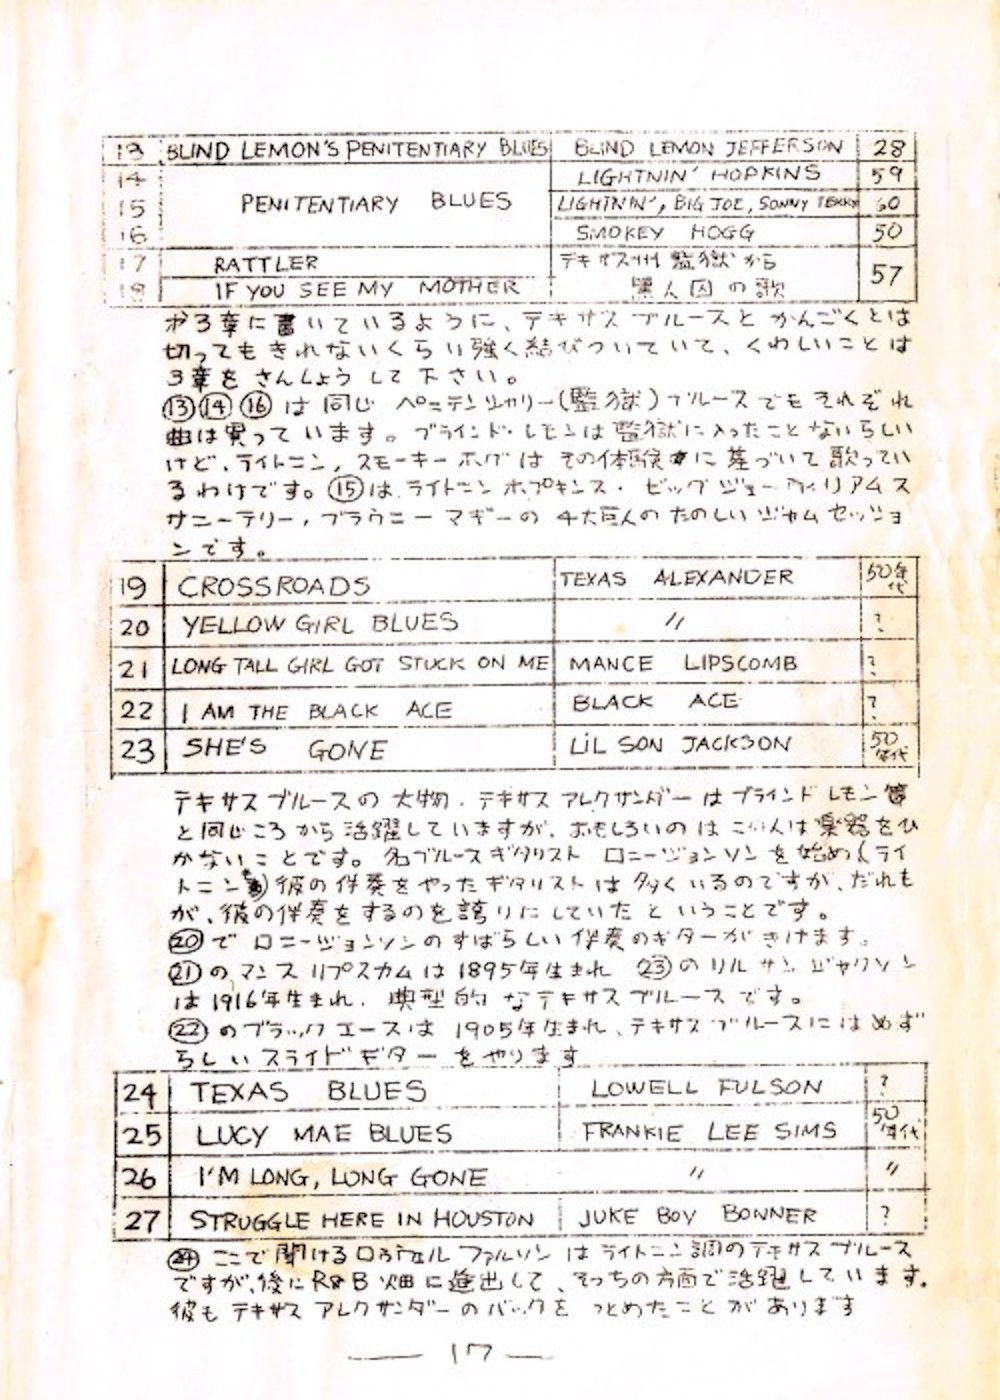 13 BLIND LEMON'S PENITENTIARY BLUES BLIND LEMON JEFFERSON 28
14 LIGHTNIN' HOPKINS 59
15 PENITENTIARY BLUES LIGHTNIN', BIG JOE, SONNY TERRY 60
16 SMOKEY HOGG 50
17 RATTLER テキサス州監獄から 57
18 IF YOU SEE MY MOTHER 黒人囚の歌
才3章に書いているように、テキサスブルースとかんごくとは
切ってもきれないくらい強く結びついていて、くわしいことは
3章をさんしょうして下さい。
⑬⑭⑯は同じペニテンシャリー(監獄)ブルースでもそれぞれ
曲は異っています。ブラインド・レモンは監獄に入ったことないらしい
けど、ライトニン,スモーキーホグはその体験に基づいて歌ってい
るわけです。⑮はライトニンホプキンス・ビッグジョーウィリアムス
サニーテリー,ブラウニーマギーの4大巨人のたのしいジャムセッショ
ンです。
19 CROSSROADS TEXAS ALEXANDER 50年代
20 YELLOW GIRL BLUES 〃 ?
21 LONG TALL GIRL GOT STUCK ON ME MANCE LIPSCOMB ?
22 I AM THE BLACK ACE BLACK ACE ?
23 SHE'S GONE LIL SON JACKSON 50年代
テキサスブルースの大物・テキサスアレクサンダーはブラインドレモン
と同じころから活躍していますが、おもしろいのはこの人は楽器をひ
かないことです。名ブルースギタリスト ロニージョンソンを始め(ライ
トニン)彼の伴奏をやったギタリストは多くいるのですが、だれも
が、彼の伴奏をするのを誇りにしていたということです。
⑳でロニージョンソンのすばらしい伴奏のギターがきけます。
㉑のマンスリプスカムは1895年生まれ ㉓のリルサンジャクソン
は1916年生まれ、典型的なテキサスブルースです。
㉒のブラックエースは1905年生まれ、テキサスブルースにはめず
らしいスライドギターをやります
24 TEXAS BLUES LOWELL FULSON ?
25 LUCY MAE BLUES FRANKIE LEE SIMS 50年代
26 I'M LONG, LONG GONE 〃 〃
27 STRUGGLE HERE IN HOUSTON JUKE BOY BONNER ?
㉔ここで聞けるロウェルフルソンはライトニン調のテキサスブルース
ですが、後にR&B畑に進出して、そっちの方面で活躍しています。
彼もテキサスアレクサンダーのバックをつとめたことがあります
— 17 —